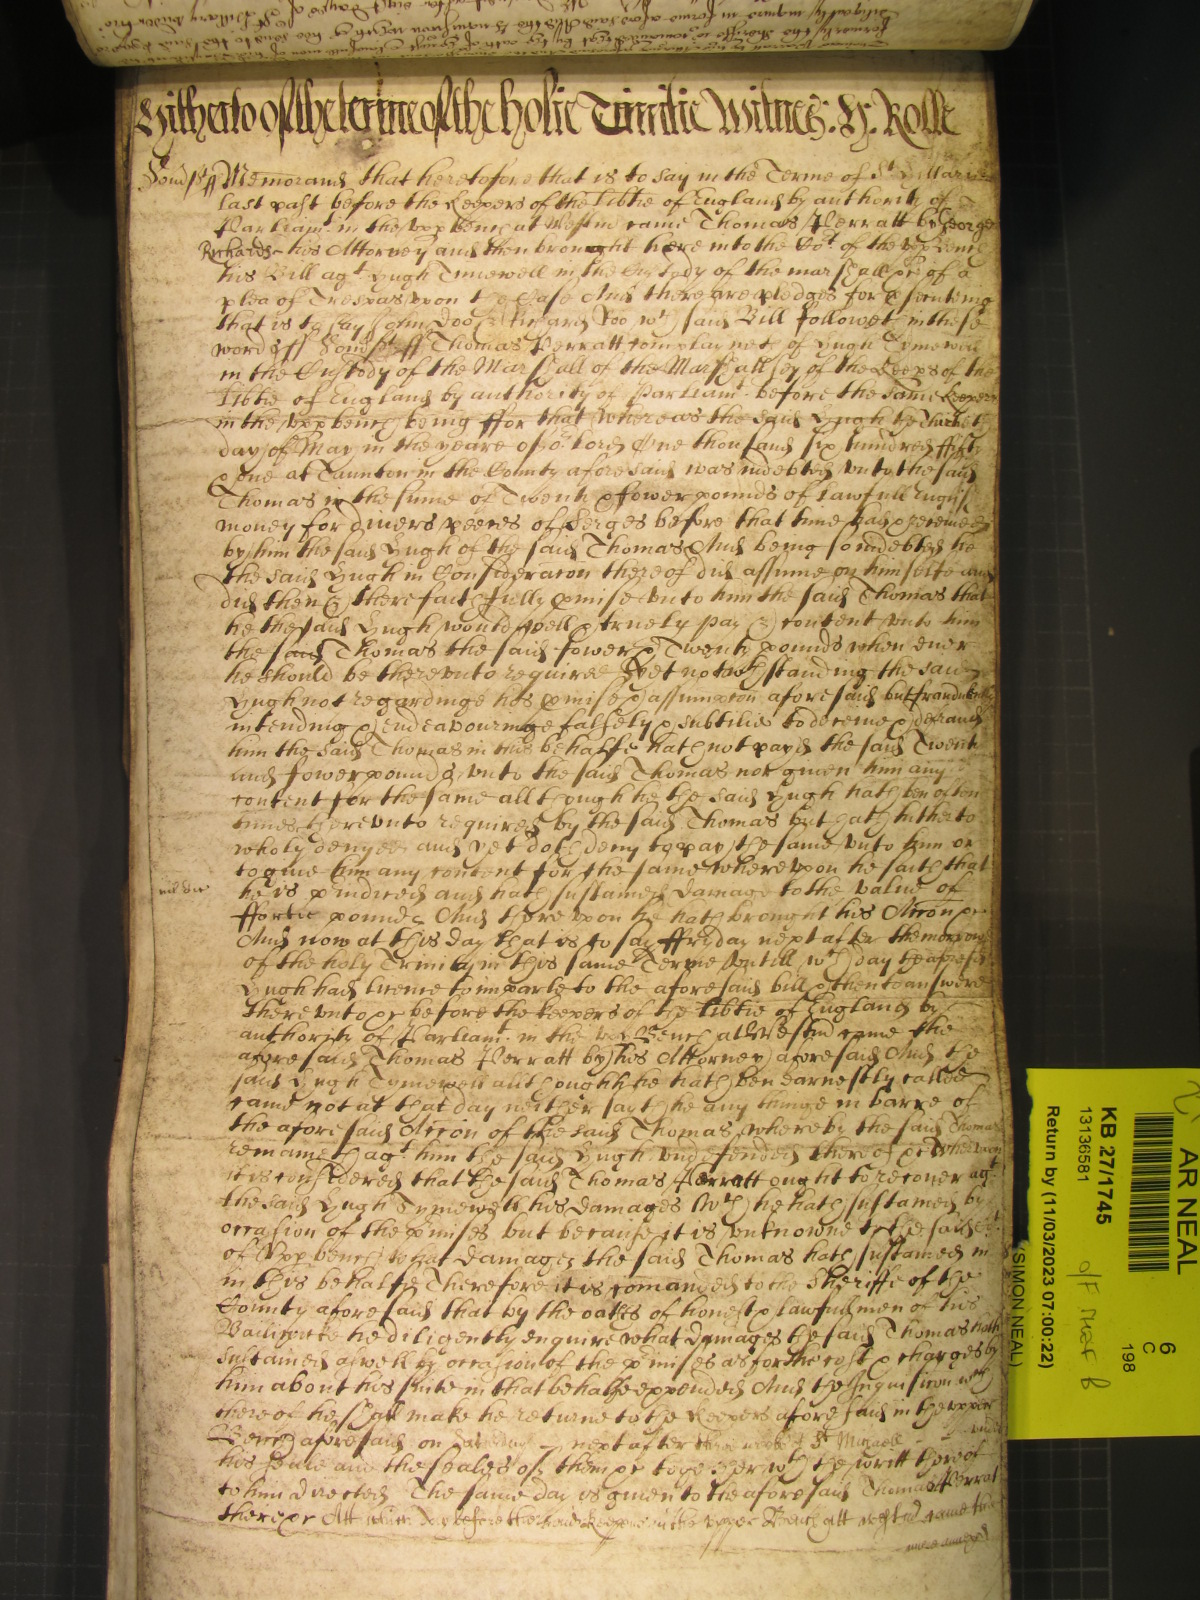 Hitherto of the terme of the holie Trinitie Witnes: H: Rolle
Somst ss Memorand that heretofore that is to say in the Terme of St Hillarie
last past before the Keepers of the libtie of England by authority of
Parliamt in the vpp bench at Westm came Thomas Perratt by George
Richards his Attorney and then brought here into the Cot of the vpp bench
his Bill agt Hugh Timewell in the Custody of the marshall &c of a
plea of Trespas vpon the Case And there are pledges for psecuting
that is to say John Doo & Richard Roo wch said Bill followeth in these
words ss Somst ss Thomas Perratt complayneth of Hugh Tymewell
in the Custody of the Marshall of the Marshallsey of the Keeps of the
libtie of England by authority of Parliamt before the same Keepers
in the vpp bench being ffor that whereas the said Hugh the
day of May in the yeare of or lord One thousand six hundred ffifty
& one at Taunton in the County aforesaid was indebted vnto the said
Thomas in the sume of Twenty & fower pounds of lawfull English
money for divers peeces of Serges before that time had &
by him the said Hugh of the said Thomas And being so indebted he
the said Hugh in Consideracon thereof did assume on himselfe and
did then & there faithfully pmise vnto him the said Thomas that
he the said Hugh would well & truely pay & content vnto him
the said Thomas the said fower & Twenty pounds when ever
he should be therevnto required Yet notwthstanding the said
Hugh not regardinge his pmise & assumpcon aforesaid but fraudulently
intending & endeavouringe falsely & subtilie to deceive & defraud
him the said Thomas in this behalfe hath not payd the said Twenty
and fower pounds vnto the said Thomas nor given him any
content for the same although he the said Hugh hath ben often
times therevnto required by the said Thomas but hath hitherto
wholy denyed and yet doth deny to pay the same vnto him or
to give him any content for the same wherevpon he saith that
he is piudiced and hath sustained damage to the value of
ffortie pounds And therevpon he hath brought his Accon &c
And now at this day that is to say ffryday next after the morrow
of the holy Trinity in this same Terme vntill wch day the aforesd
Hugh had licence to imparle to the aforesaid bill & then to answere
therevnto &c before the Keepers of the libtie of England by
authority of Parliamt in the vpp Bench at Westm came the
aforesaid Thomas Perratt by his Attorney aforesaid And the
said Hugh Tymewell although he hath ben earnestly called
came not at that day neither sayth he any thinge in barre of
the aforesaid Accon of the said Thomas whereby the said Thomas
remaineth agt him the said Hugh vndefended thereof &c Wherevpon
it is considered that the said Thomas Perratt ought to recover agt
the said Hugh Tymewell his damages wch he hath sustained by
occasion of the pmises but because it is vnknowne to the said Cot
of Vpp bench what damages the said Thomas hath sustained in
in this behalfe Therefore it is comanded to the Sheriffe of the
County aforesaid that by the oathes of honest & lawfull men of his
Bailiwicke he diligently enquire what damages the said Thomas hath
sustained aswell by occasion of the pmises as for the cost & charges by
him about his suite in that behalfe expended And the Inquisicon wch
thereof he shall make he returne to the Keepers aforesaid in the vpper
Bench aforesaid on next after St Michaell vnder
his seale and the seales of them &c togeather wth the writt thereof
to him directed The same day is given to the aforesaid Thomas Perratt
there &c Att which Day before the Keepers in the vpper Bench att Westm came the
AR NEAL
6
C
198
KB 27/1745
13136581
Return by (11/03/2023 07:00:22)
(SIMON NEAL)